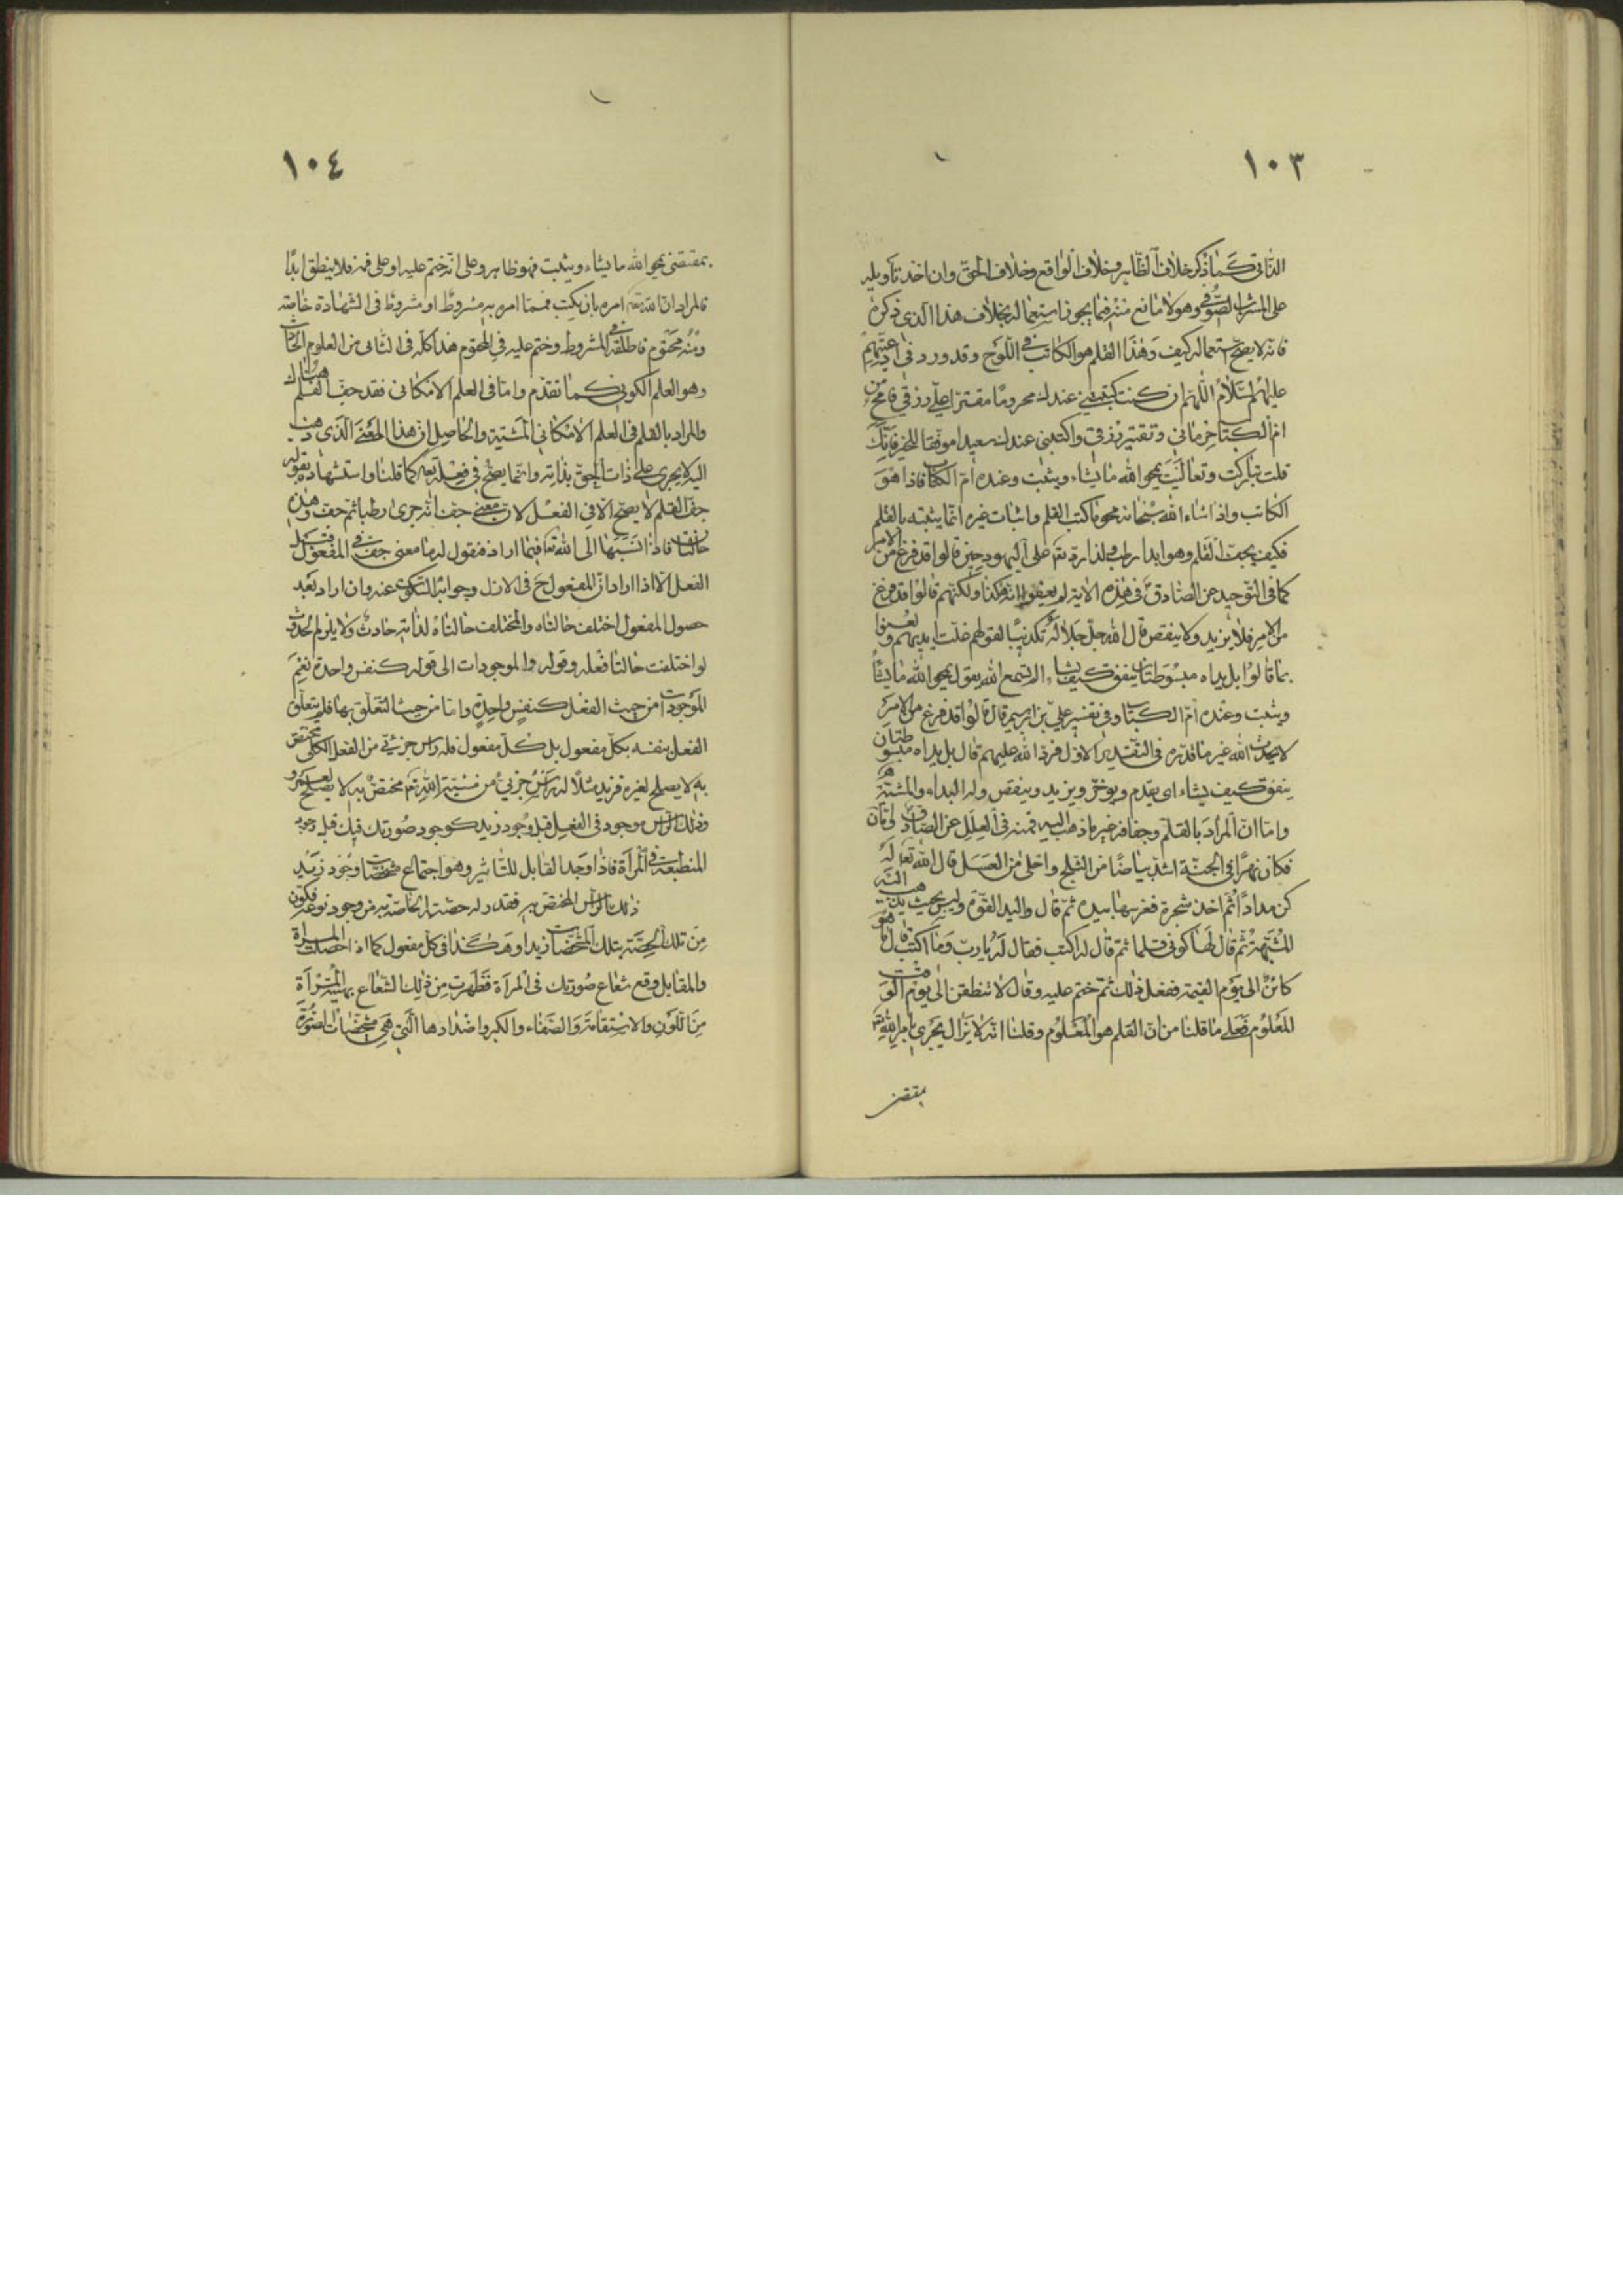 ١٠٣
الذاتى كما ذكر خلاف الظاهر وخلاف الواقع وخلاف الحق وان اخذ تأويله
على المشرب الصوفى وهو لا مانع منه فيما يجوز استعماله بخلاف هذا الذى ذكره
فانه لا يصح استعماله كيف وهذا القلم هو الكاتب فى اللوح وقد ورد فى ادعيتهم
عليهم السلام اللهم ان كنت كتبتنى عندك محروما مقترا على رزقى فامح من
ام الكتاب حرمانى وتقتير رزقى واكتبنى عندك سعيدا موفقا للخير فانك
قلت تباركت وتعاليت يمحو الله ما يشاء ويثبت وعنده ام الكتاب فاذا هو
الكاتب واذا شاء الله سبحانه محو ما كتب القلم واثبات غيره انما يثبته بالقلم
فكيف يجف القلم وهو ابدا رطب ولذا رد تعالى على اليهود حين قالوا قد فرغ من الامر
كما فى التوحيد عن الصادق فى هذه الآية لم يعنوا انه هكذا ولكنهم قالوا قد فرغ
من الامر فلا يزيد ولا ينقص قال الله جل جلاله تكذيبا لقولهم غلت ايديهم ولعنوا
بما قالوا بل يداه مبسوطتان ينفق كيف يشاء الم تسمع الله يقول يمحو الله ما يشاء
ويثبت وعنده ام الكتاب وفى تفسير على بن ابرهيم قال قالوا قد فرغ من الامر
لا يحدث الله غير ما قدره فى التقدير الاول فرد الله عليهم قال بل يداه مبسوطتان
ينفق كيف يشاء اى يقدم ويؤخر ويزيد وينقص وله البداء والمشية
واما ان المراد بالقلم وجفافه غير ما ذهب اليه فمنه فى العلل عن الصادق
فكان نهرا فى الجنة اشد بياضا من الثلج واحلى من العسل قال الله تعالى له
كن مدادا ثم اخذ شجرة فغرسها بيده ثم قال واليد القوة وليس بحيث يذهب اليه
المشبهة ثم قال لها كونى قلما ثم قال له اكتب فقال له يا رب وما اكتب قال ما هو
كائن الى يوم القيمة ففعل ذلك ثم ختم عليه وقال لا تنطقن الى يوم الوقت
المعلوم فعلى ما قلنا من ان القلم هو المعلوم وقلنا انه لا يزال يجرى بامر الله
بمقتضى
١٠٤
بمقتضى يمحو الله ما يشاء ويثبت فهو ظاهر وعلى انه ختم عليه او على فمه فلا ينطق ابدا
فالمراد ان الله تعالى امره بان يكتب فمما امره به مشروط او مشروط فى الشهادة خاصة
ومنه محتوم فاطلقه فى المشروط وختم عليه فى المحتوم هذا كله فى الثانى من العلوم الحادث
وهو العلم الكونى كما تقدم واما فى العلم الامكانى فقد جف القلم هنالك
والمراد بالقلم فى العلم الامكانى المشية والحاصل ان هذا المعنى الذى ذهب
اليه لا يجرى على ذات الحق بذاته وانما يصح فى فعله تعالى كما قلنا واستشهاده بقوله
جف القلم لا يصح الا فى الفعل لان معنى جف انه جرى رطبا ثم جف وهذه
حالتان فاذا نسبها الى الله تعالى فيما اراد فنقول له ما معنى جف فى المفعول قبل
الفعل الا اذا اراد ان المفعول جف فى الازل وجوابه السكوت عنه وان اراد بعد
حصول المفعول اختلف حالتاه والمختلف حالتاه لذاته حادث ولا يلزم الحدوث
لو اختلفت حالتا فعله وقوله والموجودات الى قوله كنفس واحدة نعم
الموجودات من حيث الفعل كنفس واحدة واما من حيث التعلق بها فلم يتعلق
الفعل بنفسه بكل مفعول بل كل مفعول فله رأس جزئى من الفعل الكلى مختص
به لا يصلح لغيره فزيد مثلا له رأس جزئى من مشية الله تعالى مختص به لا يصلح لعمرو
وذلك الرأس موجود فى الفعل قبل وجود زيد كوجود صورتك فيك قبل وجود
المنطبعة فى المرآة فاذا وجد القابل للتأثير وهو اجتماع مشخصات وجود زيد
ذلك الرأس المختص به فقدر له حصته الخاصة به من وجود نوعه فكون
من تلك الحصة بتلك المشخصات زيدا وهكذا فى كل مفعول كما اذا حصلت المرآة
والمقابل وقع شعاع صورتك فى المرآة فظهرت من ذلك الشعاع بهيئة المرآة
من اللون والاستقامة والصفاء والكبر واضدادها التى هى مشخصات الصورة